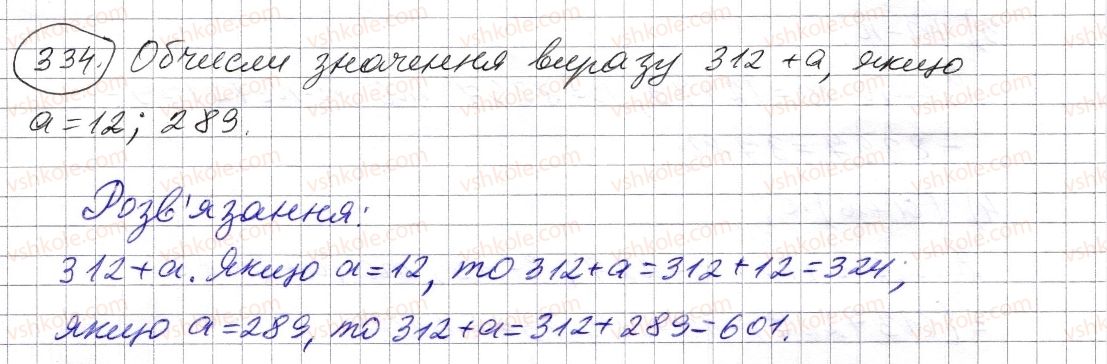 334. Обчисли значення виразу 312 + a, якщо
a = 12; 289.
Розв'язання:
312 + a. Якщо a = 12, то 312 + a = 312 + 12 = 324;
якщо a = 289, то 312 + a = 312 + 289 = 601.